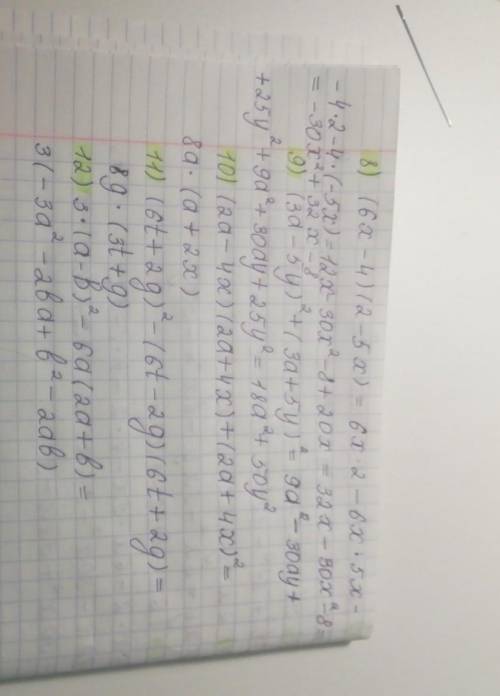 8) (6x-4)(2-5x) = 6x·2-6x·5x-
-4·2-4·(-5x)=12x-30x²-8+20x=32x-30x²-8=
=-30x²+32x-8
9) (3a-5y)²+(3a+5y)²=9a²-30ay+
+25y²+9a²+30ay+25y²=18a²+50y²
10) (2a-4x)(2a+4x)+(2a+4x)²=
8a·(a+2x)
11) (6t+2g)²-(6t-2g)(6t+2g)=
8g·(3t+g)
12) 3·(a-b)²-6a(2a+b)=
3(-3a²-2ba+b²-2ab)